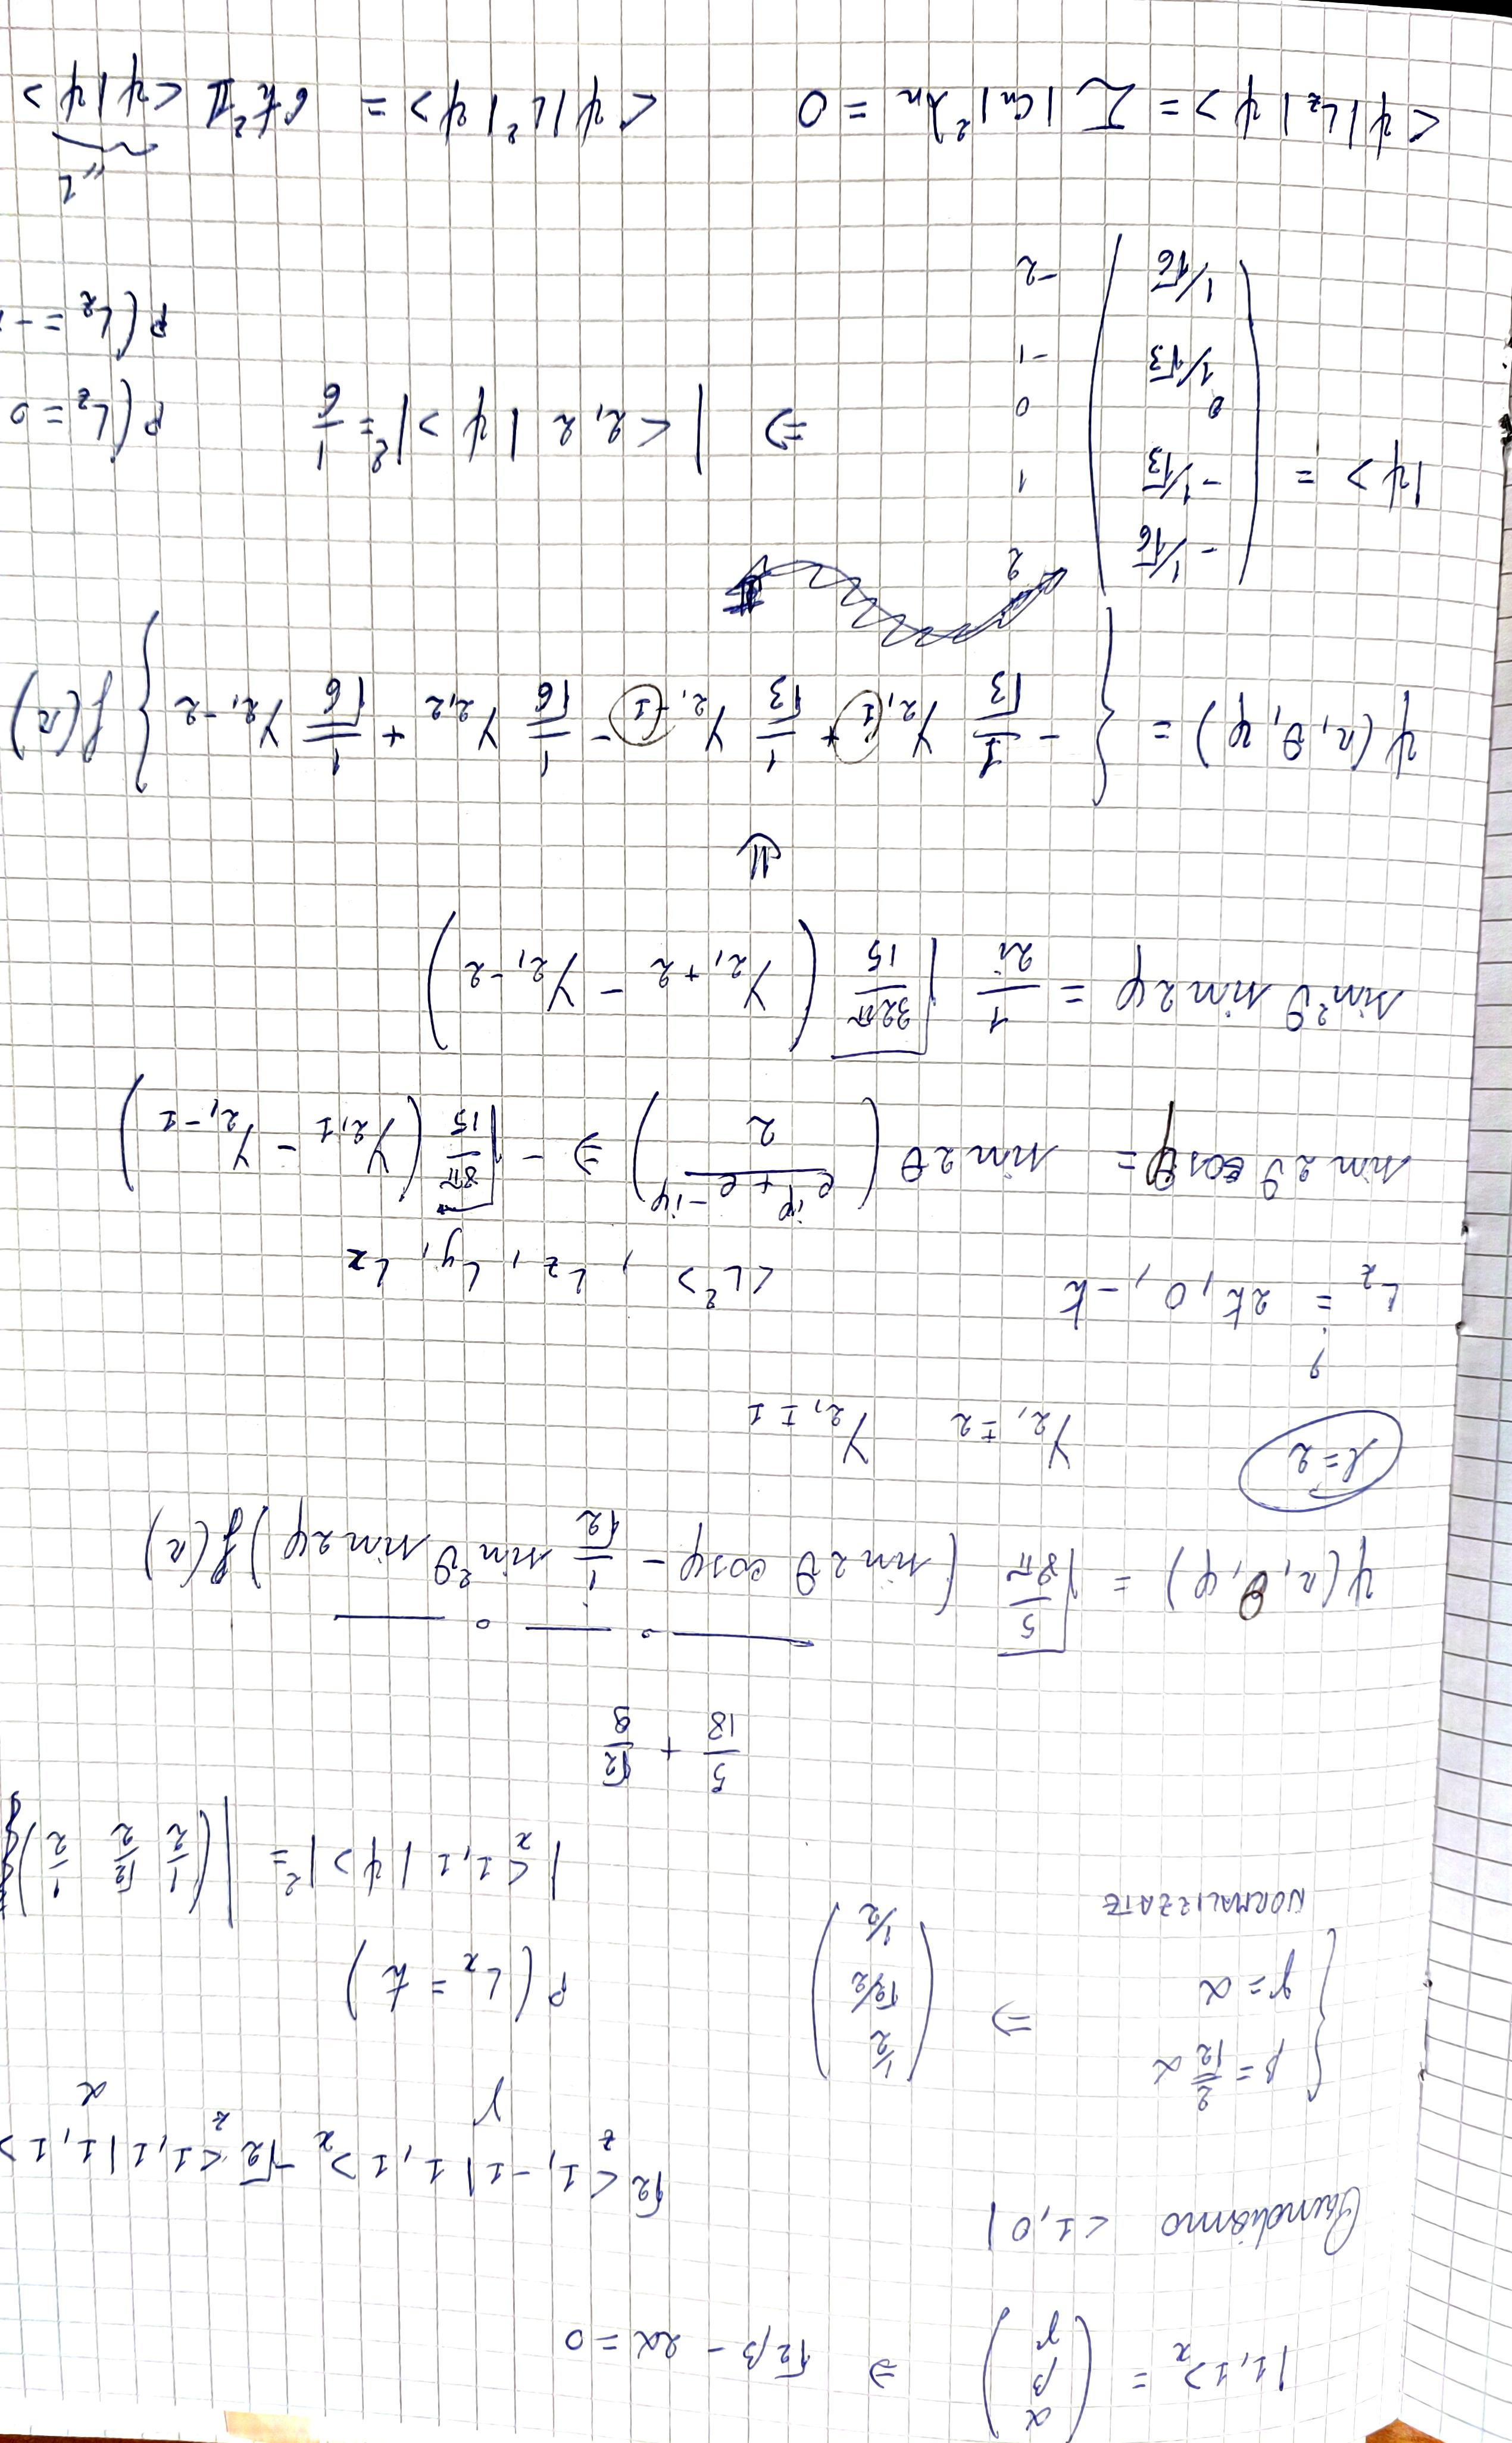 |1,1>x = (α β γ) ⇒ √2β - 2α = 0
<1,0|
√2 <1,-1|1,1>x - √2 <1,1|1,1>
z x z
γ α
{ β = 2/√2 α
γ = α
NORMALIZZATE
⇒ (1/2 √2/2 1/2)
P(Lx = ħ)
|x<1,1|ψ>|² = |(1/2 √2/2 1/2)
5/18 + √2/9
ψ(r,θ,φ) = √5/8π (sin2θ cosφ - 1/√2 sin²θ sin2φ) f(r)
l=2 Y2,±2 Y2,±1
?
Lz = 2ħ, 0, -ħ <L²>, Lz, Ly, Lx
sin2θ cosφ = sin2θ (e^iφ + e^-iφ / 2) ⇒ - √8π/15 (Y2,1 - Y2,-1)
sin²θ sin2φ = 1/2i √32π/15 (Y2,+2 - Y2,-2)
⇓
ψ(r,θ,φ) = { -1/√3 Y2,1 + 1/√3 Y2,-1 - 1/√6 Y2,2 + 1/√6 Y2,-2 } f(r)
|ψ> = (-1/√6 -1/√3 0 1/√3 1/√6) 2 1 0 -1 -2
⇒ |<2,2|ψ>|² = 1/6
P(Lz = 0
P(Lz = -
<ψ|Lz|ψ> = Σ |Cn|² λn = 0 <ψ|L²|ψ> = 6ħ² 𝟙 <ψ|ψ>
"1